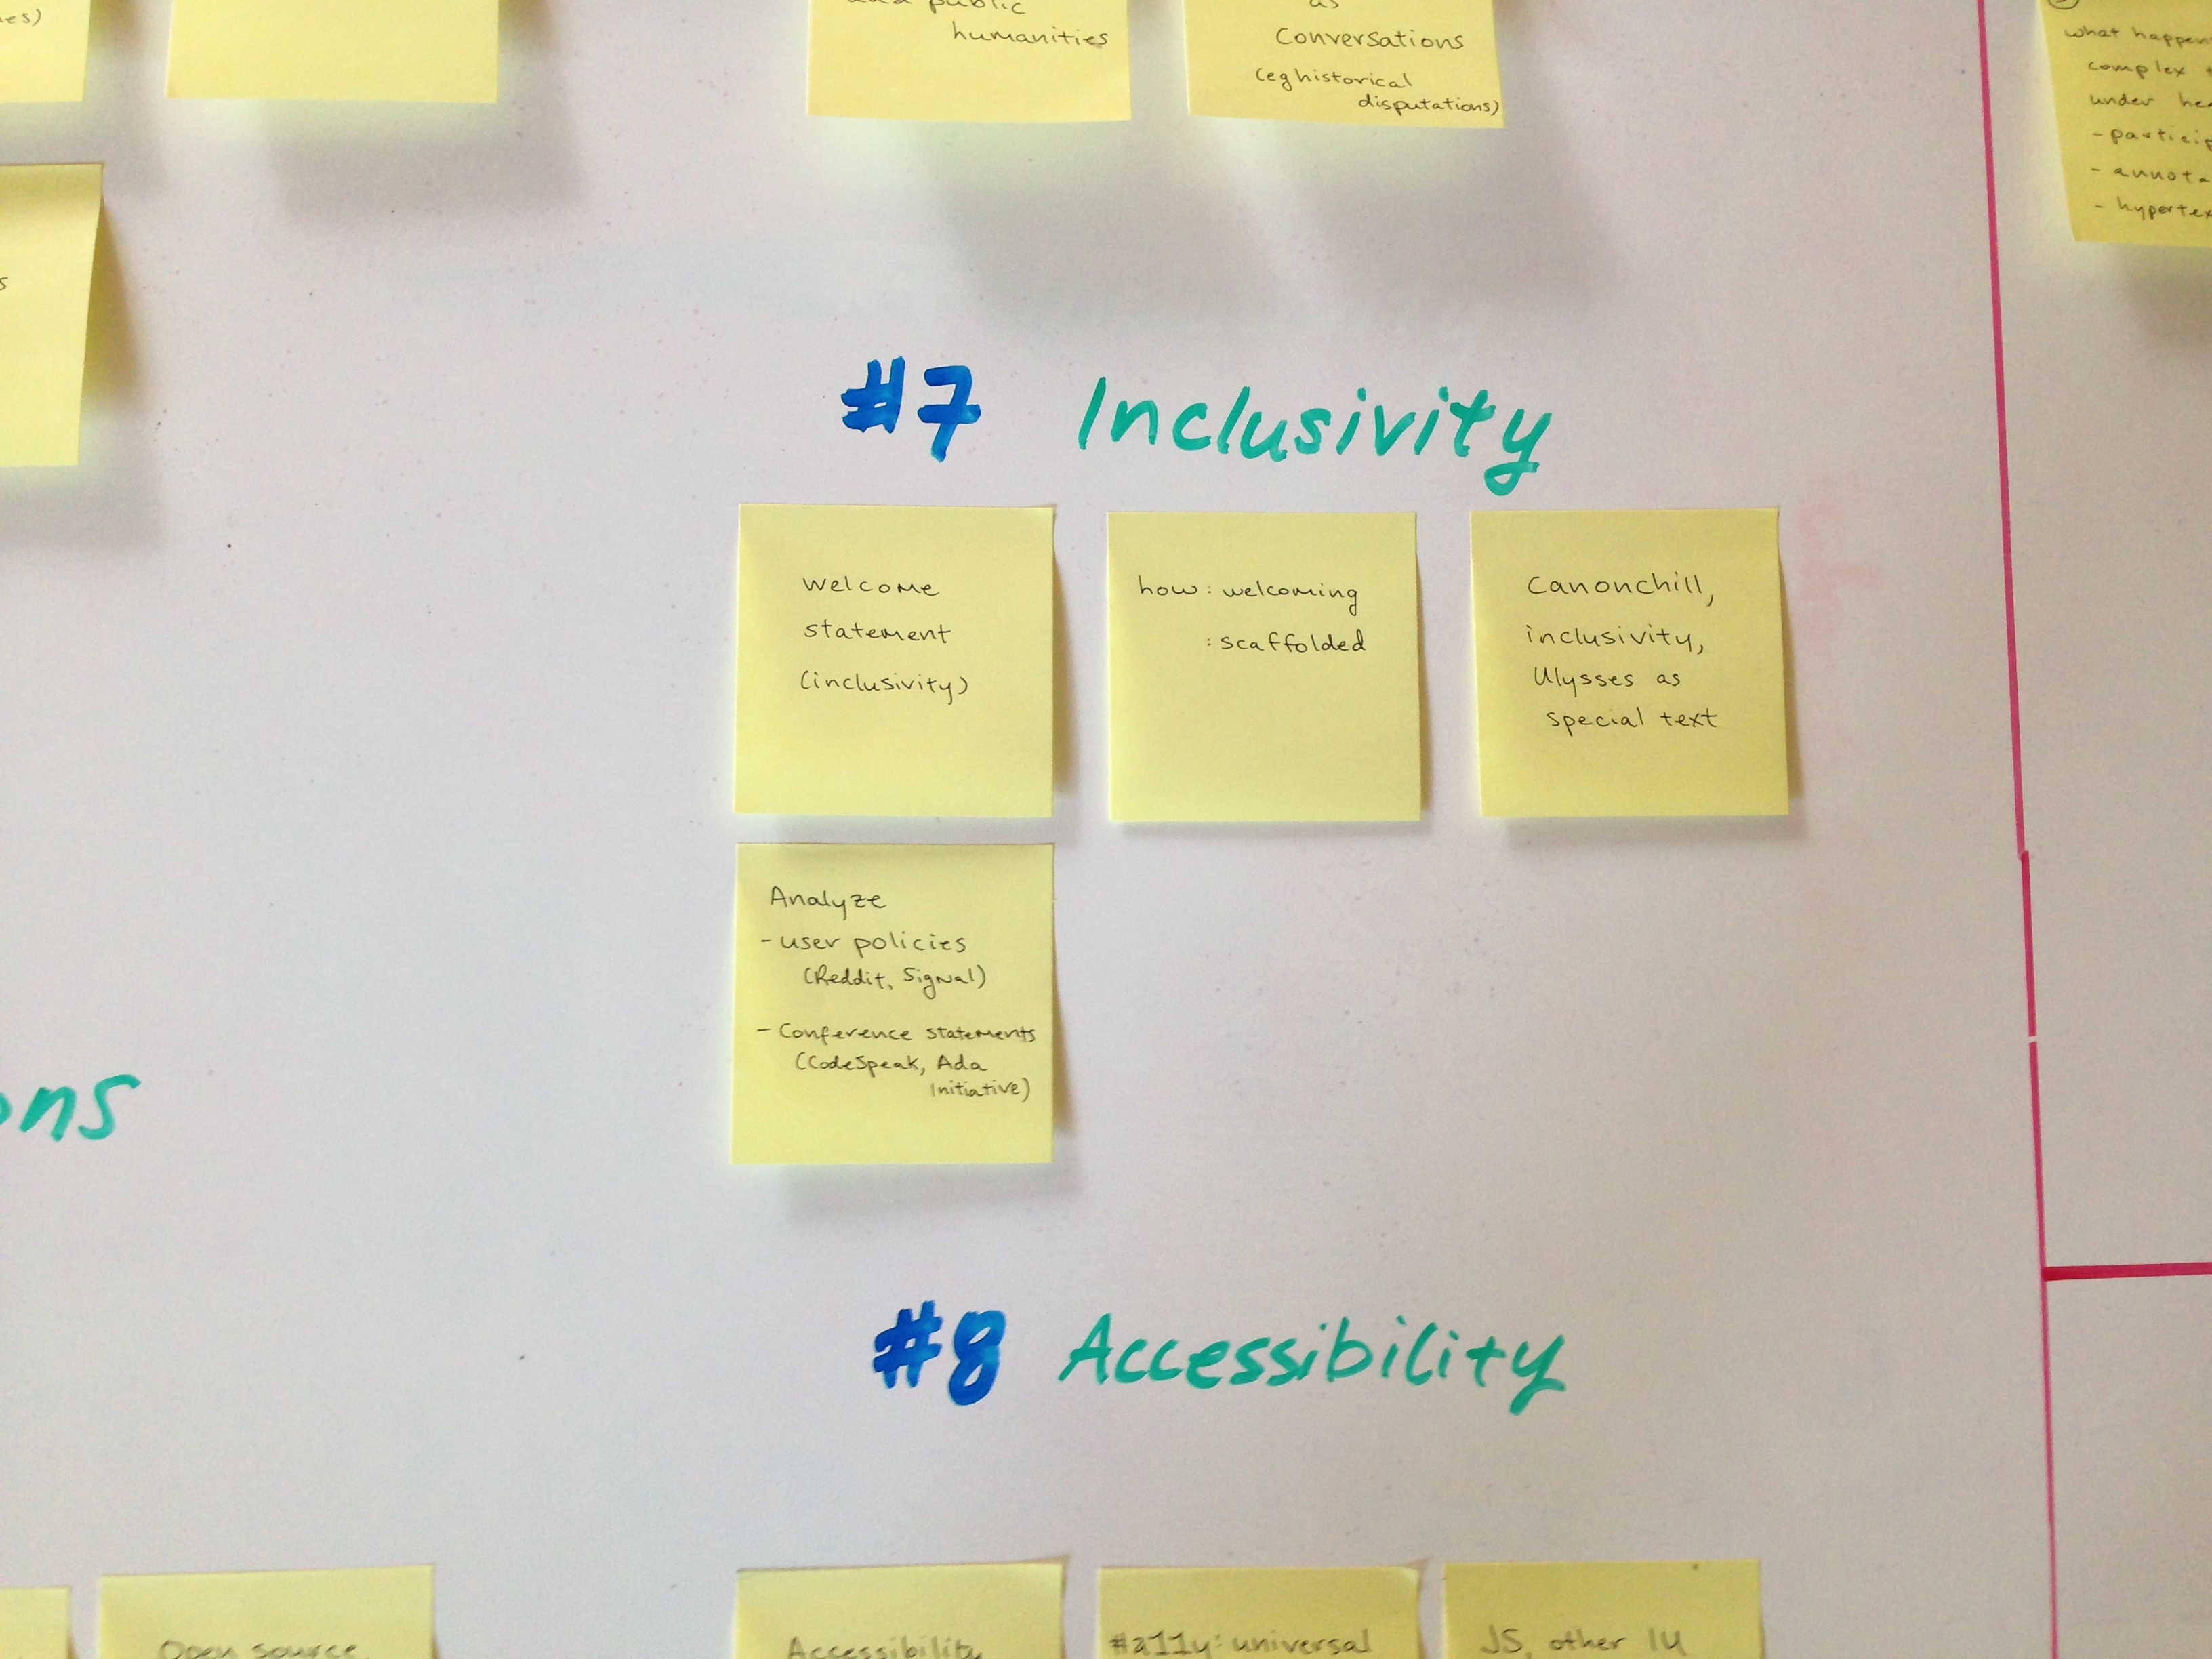 es)
public
humanities
as
conversations
(eg historical
disputations)
what happen
complex
under hea
- particip
- annota
- hypertex
s
#7 Inclusivity
welcome
statement
(inclusivity)
how: welcoming
: scaffolded
canonchill,
inclusivity,
Ulysses as
special text
Analyze
- user policies
(Reddit, Signal)
- Conference statements
(CodeSpeak, Ada
Initiative)
ons
#8 Accessibility
Open source
Accessibility
#a11y: universal
JS, other IU